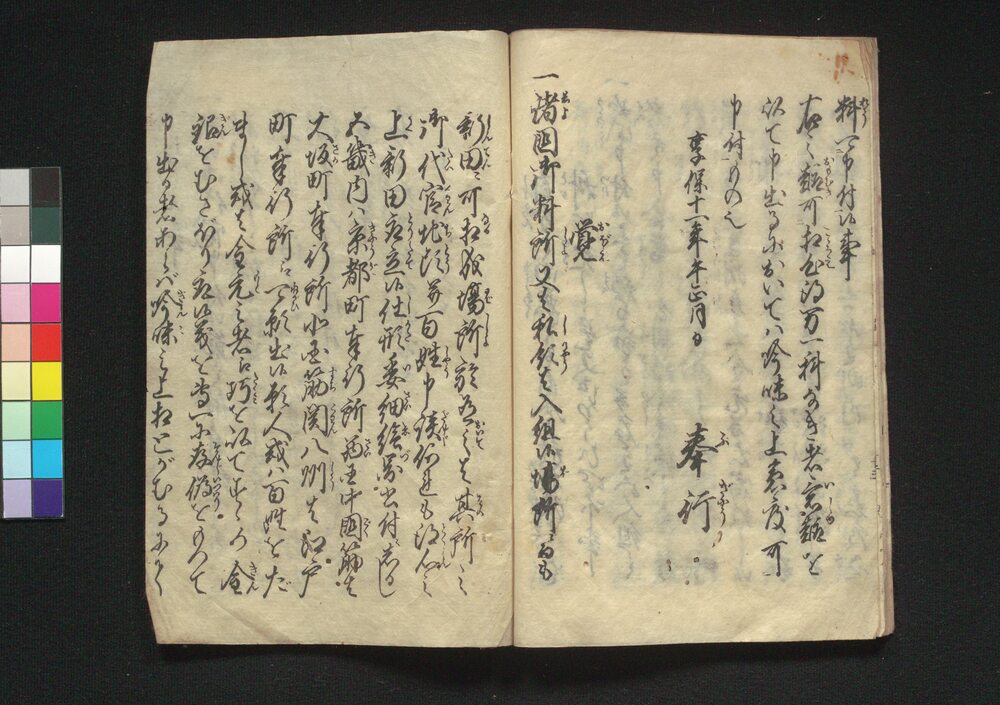 料可申付候事
右之趣可相心得万一科なき者意趣を
以て申出るにおいては吟味之上急度可
申付もの也
享保十一年午正月日
奉行
覚
一諸国御料所又は私領と入組候場所にても
新田ニ可相成場所於有之は其所之
御代官地頭并百姓申談何も得心之
上新田取立候仕形委細絵図書付にしるし
五畿内ハ京都町奉行所西国中国筋は
大坂町奉行所北国筋関八州は江戸
町奉行所江可願出候願人或ハ百姓をだ
まし或は金元之者江巧を以てすゝめ金
銀をむさぼり取候義を専一に存偽をもつて
申出る者あらバ吟味之上相とがむるにて